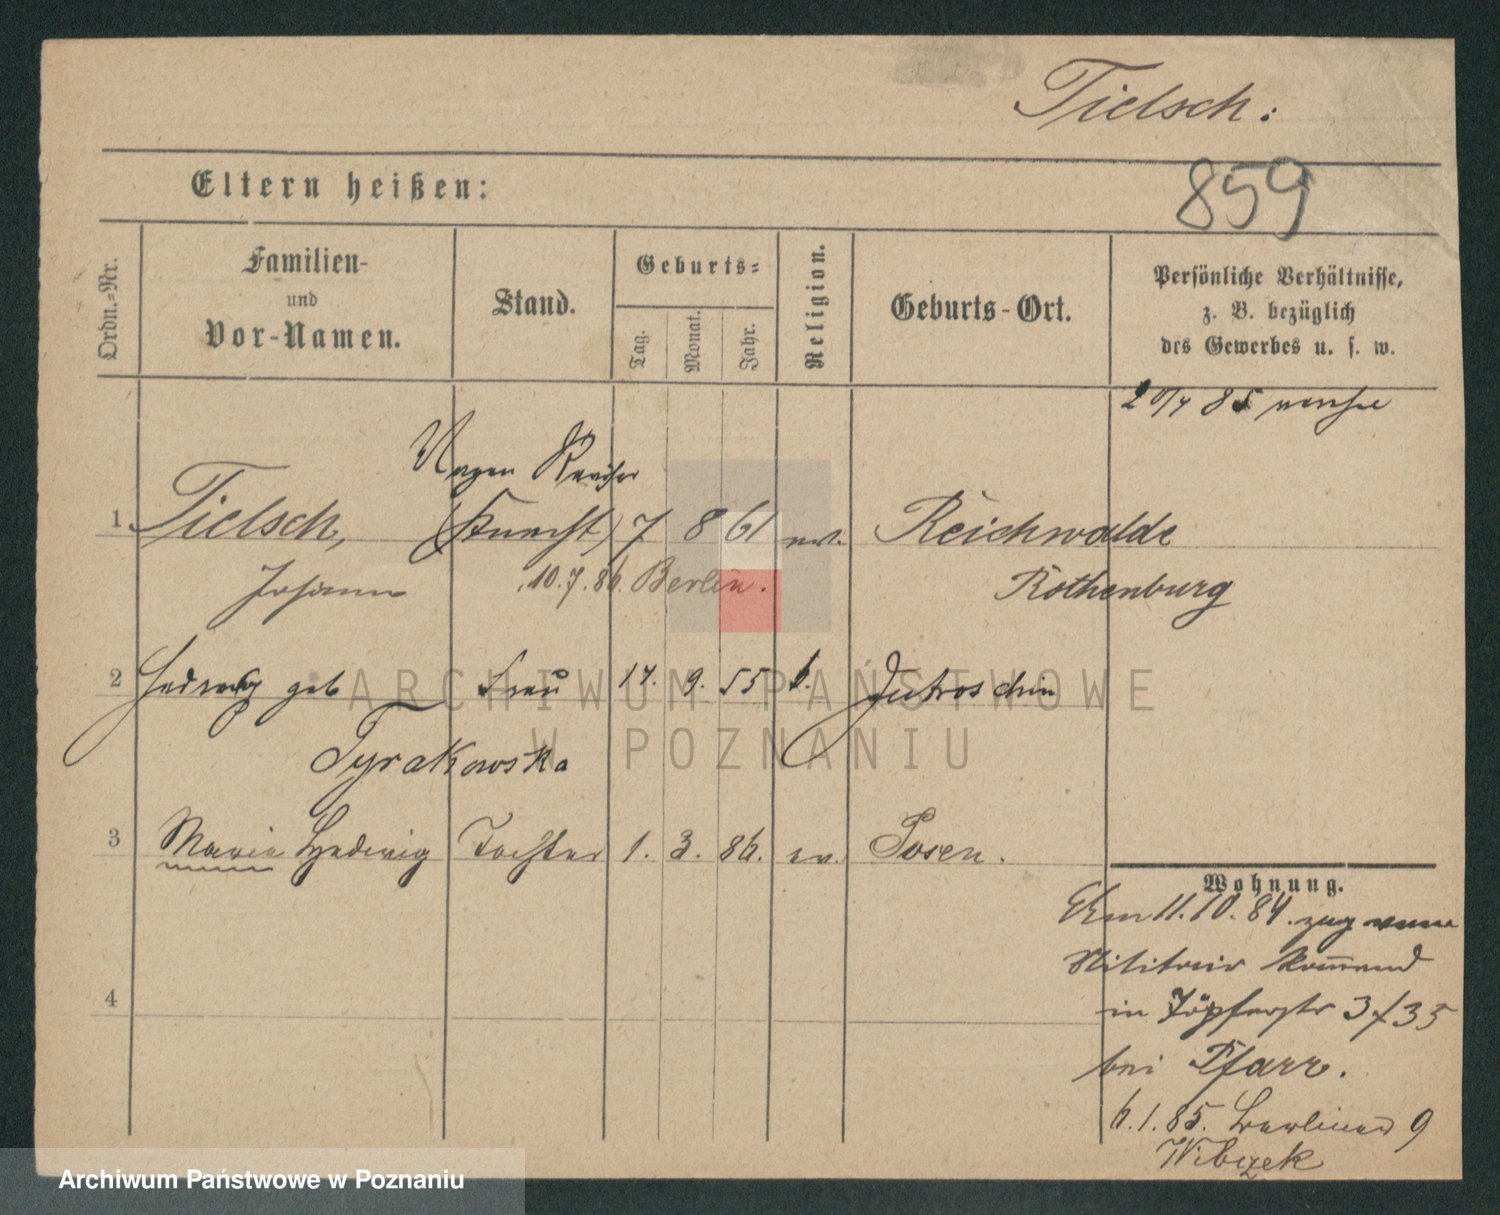 Tielsch:
859
Eltern heißen:
Ordn.-Nr.
Familien-
und
Vor-Namen.
Stand.
Geburts-
Tag.
Monat.
Jahr.
Religion.
Geburts-Ort.
Persönliche Verhältnisse,
z. B. bezüglich
des Gewerbes u. s. w.
85
1 Tielsch, (Knecht) 7 8 61 ev. Reichwalde
Johann 10.7.86. Berlin. Rothenburg
2 Hedwig geb Frau 17. 9. 55 k. Jutroschin
Tyrakowska
3 Marie Hedwig Tochter 1. 3. 86. ev. Posen.
Wohnung.
11.10.84. zug
Militair Kommand
in Töpferstr 3/35
bei Pfarr.
6.1.85. Berliner 9
4
ARCHIWUM PAŃSTWOWE
W POZNANIU
Archiwum Państwowe w Poznaniu